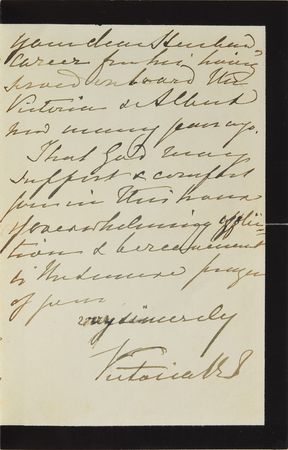 your dear Husband's
career from his having
served on board the
Victoria & Albert
now many years ago.
That God may
support & comfort
you in this hour
of overwhelming afflic-
tion & bereavement
is the sincere prayer
of yours
very sincerely
Victoria R I